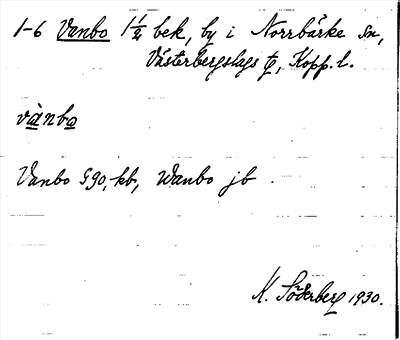 1-6 Vanbo 1 1/2 bek, by i Norrbärke sn,
Västerbergslags tg, Kopp. l.
vànbo
Vanbo G90, kb, Wanbo jb.
K. Söderberg 1930.